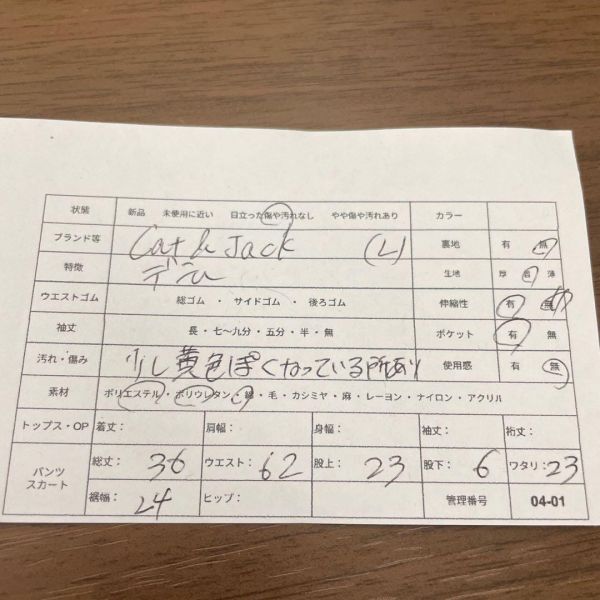 状態 新品 未使用に近い 目立った傷や汚れなし やや傷や汚れあり カラー
ブランド等 Cat & Jack (L) 裏地 有 無
特徴 デニム 生地 厚 普 薄
ウエストゴム 総ゴム ・ サイドゴム ・ 後ろゴム 伸縮性 有 無
袖丈 長・七〜九分・五分・半・無 ポケット 有 無
汚れ・傷み 少し黄色ぽくなっている所あり 使用感 有 無
素材 ポリエステル・ポリウレタン・綿・毛・カシミヤ・麻・レーヨン・ナイロン・アクリル
トップス・OP 着丈: 肩幅: 身幅: 袖丈: 裄丈:
パンツ スカート 総丈: 36 ウエスト: 62 股上: 23 股下: 6 ワタリ: 23
裾幅: 24 ヒップ: 管理番号 04-01